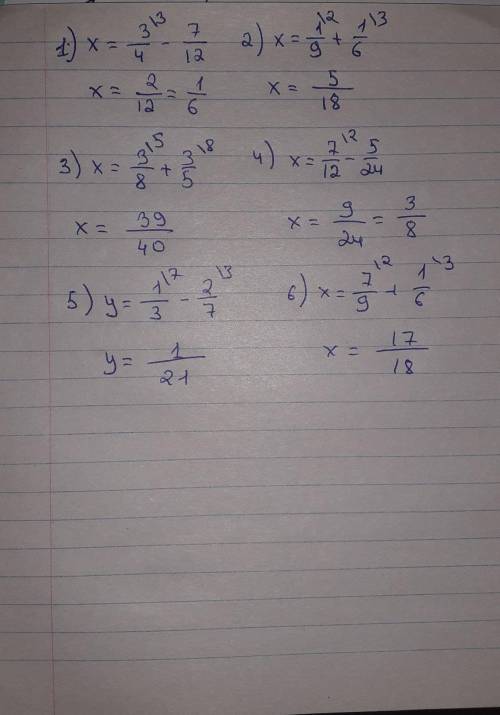 1.) x = 3\3/4 - 7/12 2) x = 1\2/9 + 1\3/6
x = 2/12 = 1/6 x = 5/18
3) x = 3\5/8 + 3\8/5 4) x = 7\2/12 - 5/24
x = 39/40 x = 9/24 = 3/8
5) y = 1\7/3 - 2\3/7 6) x = 7\2/9 + 1\3/6
y = 1/21 x = 17/18